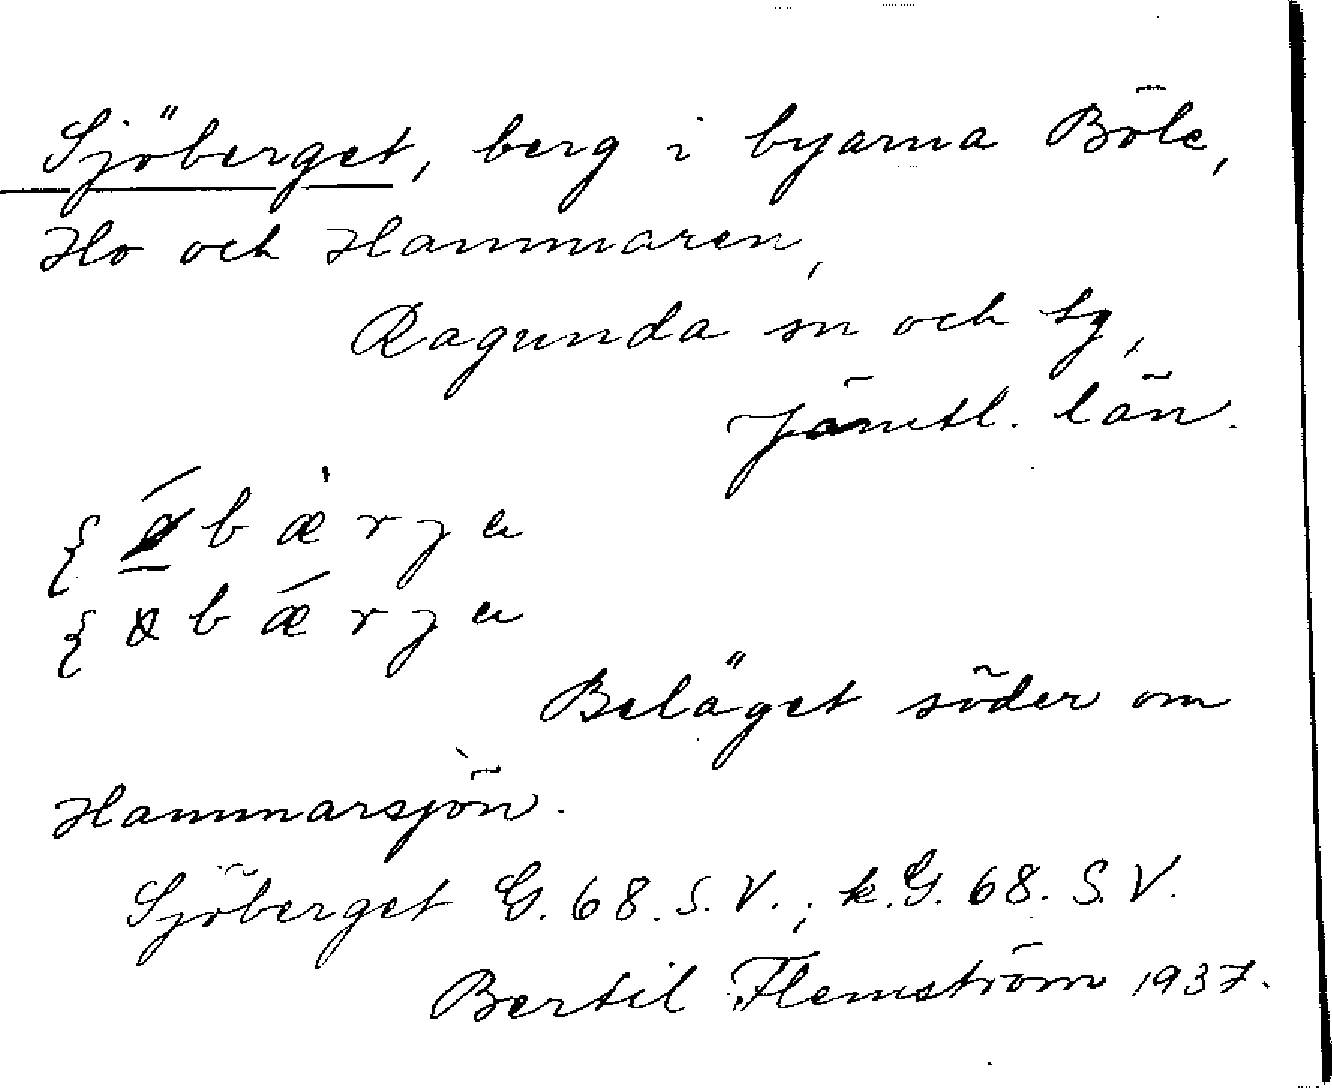 Sjöberget, berg i byarna Böle,
Ho och Hammaren,
Ragunda sn och tg,
Jämtl. län.
b æ r j a
b æ r j a
Beläget söder om
Hammarsjön.
Sjöberget G. 68. S. V.; k. G. 68. S. V.
Bertil Flemström 1937.